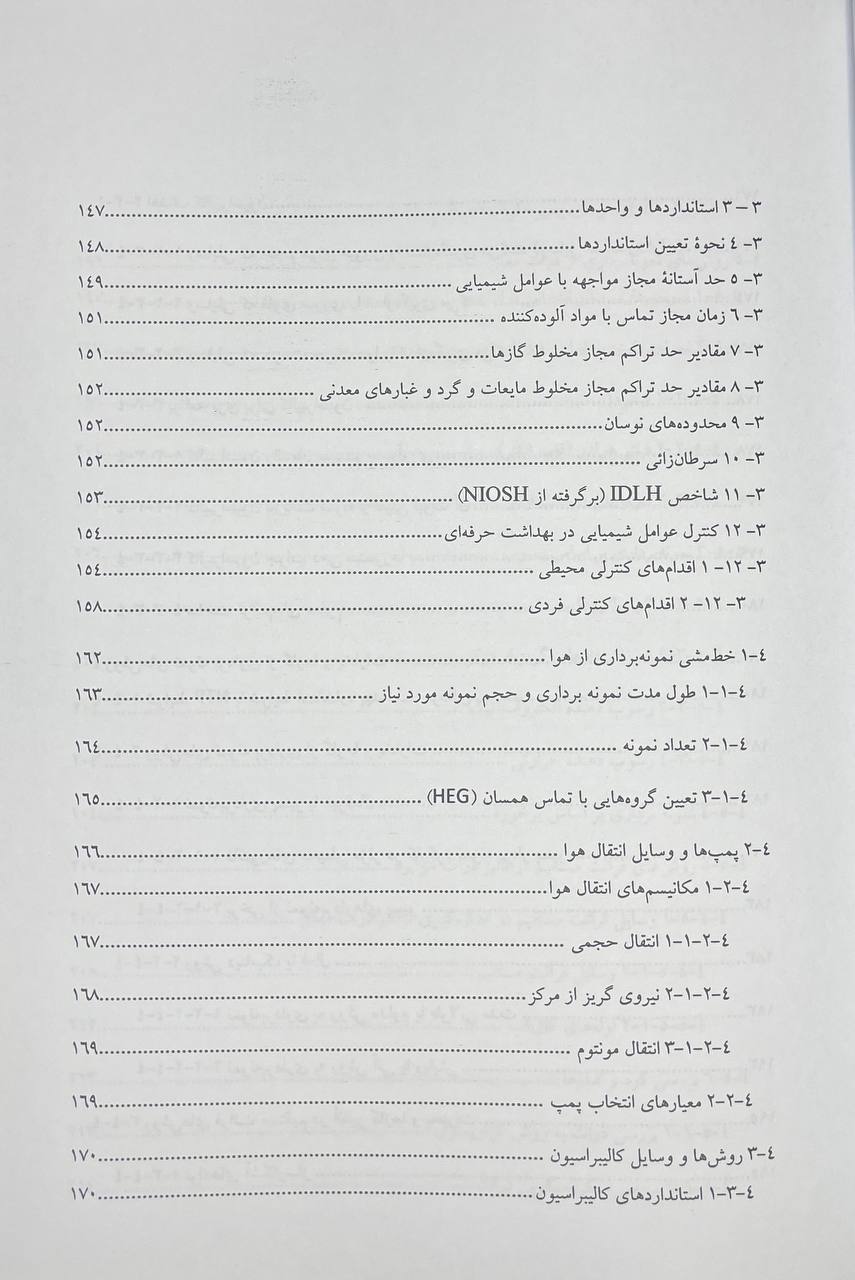 ۳ – ۳ استانداردها و واحدها ۱٤۷
۳- ٤ نحوۀ تعیین استانداردها ۱٤۸
۳- ٥ حد آستانۀ مجاز مواجهه با عوامل شیمیایی ۱٤۹
۳- ٦ زمان مجاز تماس با مواد آلوده‌کننده ۱٥۱
۳- ۷ مقادیر حد تراکم مجاز مخلوط گازها ۱٥۱
۳- ۸ مقادیر حد تراکم مجاز مخلوط مایعات و گرد و غبارهای معدنی ۱٥۲
۳- ۹ محدوده‌های نوسان ۱٥۲
۳- ۱۰ سرطان‌زائی ۱٥۲
۳- ۱۱ شاخص IDLH (برگرفته از NIOSH) ۱٥۳
۳- ۱۲ کنترل عوامل شیمیایی در بهداشت حرفه‌ای ۱٥٤
۳- ۱۲- ۱ اقدام‌های کنترلی محیطی ۱٥٤
۳- ۱۲- ۲ اقدام‌های کنترلی فردی ۱٥۸
٤-۱ خط‌مشی نمونه‌برداری از هوا ۱٦۲
٤-۱-۱ طول مدت نمونه برداری و حجم نمونه مورد نیاز ۱٦۳
٤-۱-۲ تعداد نمونه ۱٦٤
٤-۱-۳ تعیین گروه‌هایی با تماس همسان (HEG) ۱٦٥
٤-۲ پمپ‌ها و وسایل انتقال هوا ۱٦٦
٤-۲-۱ مکانیسم‌های انتقال هوا ۱٦۷
٤-۲-۱-۱ انتقال حجمی ۱٦۷
٤-۲-۱-۲ نیروی گریز از مرکز ۱٦۸
٤-۲-۱-۳ انتقال مونتوم ۱٦۹
٤-۲-۲ معیارهای انتخاب پمپ ۱٦۹
٤-۳ روش‌ها و وسایل کالیبراسیون ۱۷۰
٤-۳-۱ استانداردهای کالیبراسیون ۱۷۰